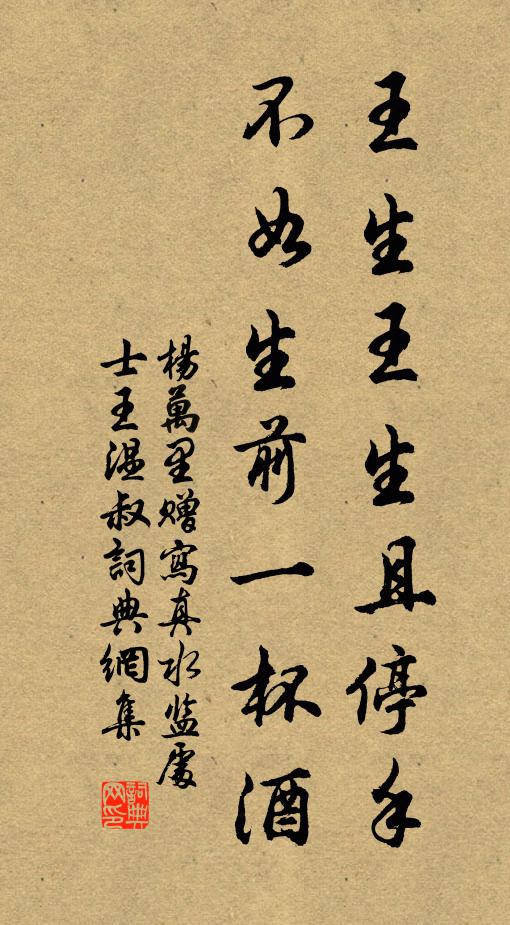 王生王生且停手
不如生前一杯酒
楊萬里贈寫真水監處
士王温叔詞典網集
詞典网印